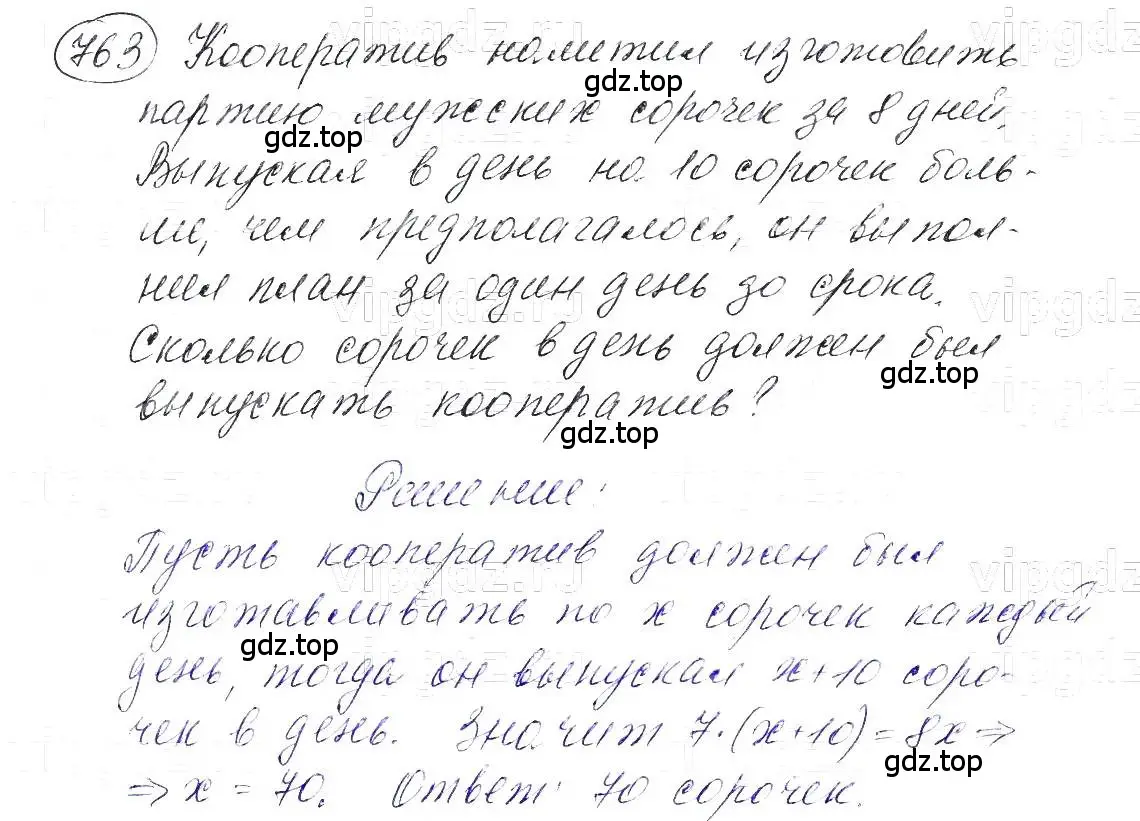 763 Кооператив наметил изготовить
партию мужских сорочек за 8 дней.
Выпуская в день на 10 сорочек боль-
ше, чем предполагалось, он выпол-
нил план за один день до срока.
Сколько сорочек в день должен был
выпускать кооператив?
Решение:
Пусть кооператив должен был
изготавливать по x сорочек каждый
день, тогда он выпускал x+10 соро-
чек в день. Значит 7·(x+10)=8x⇒
⇒x = 70. Ответ: 70 сорочек.
gdz.top
gdz.top
gdz.top
gdz.top
gdz.top
gdz.top
vipgdz.ru